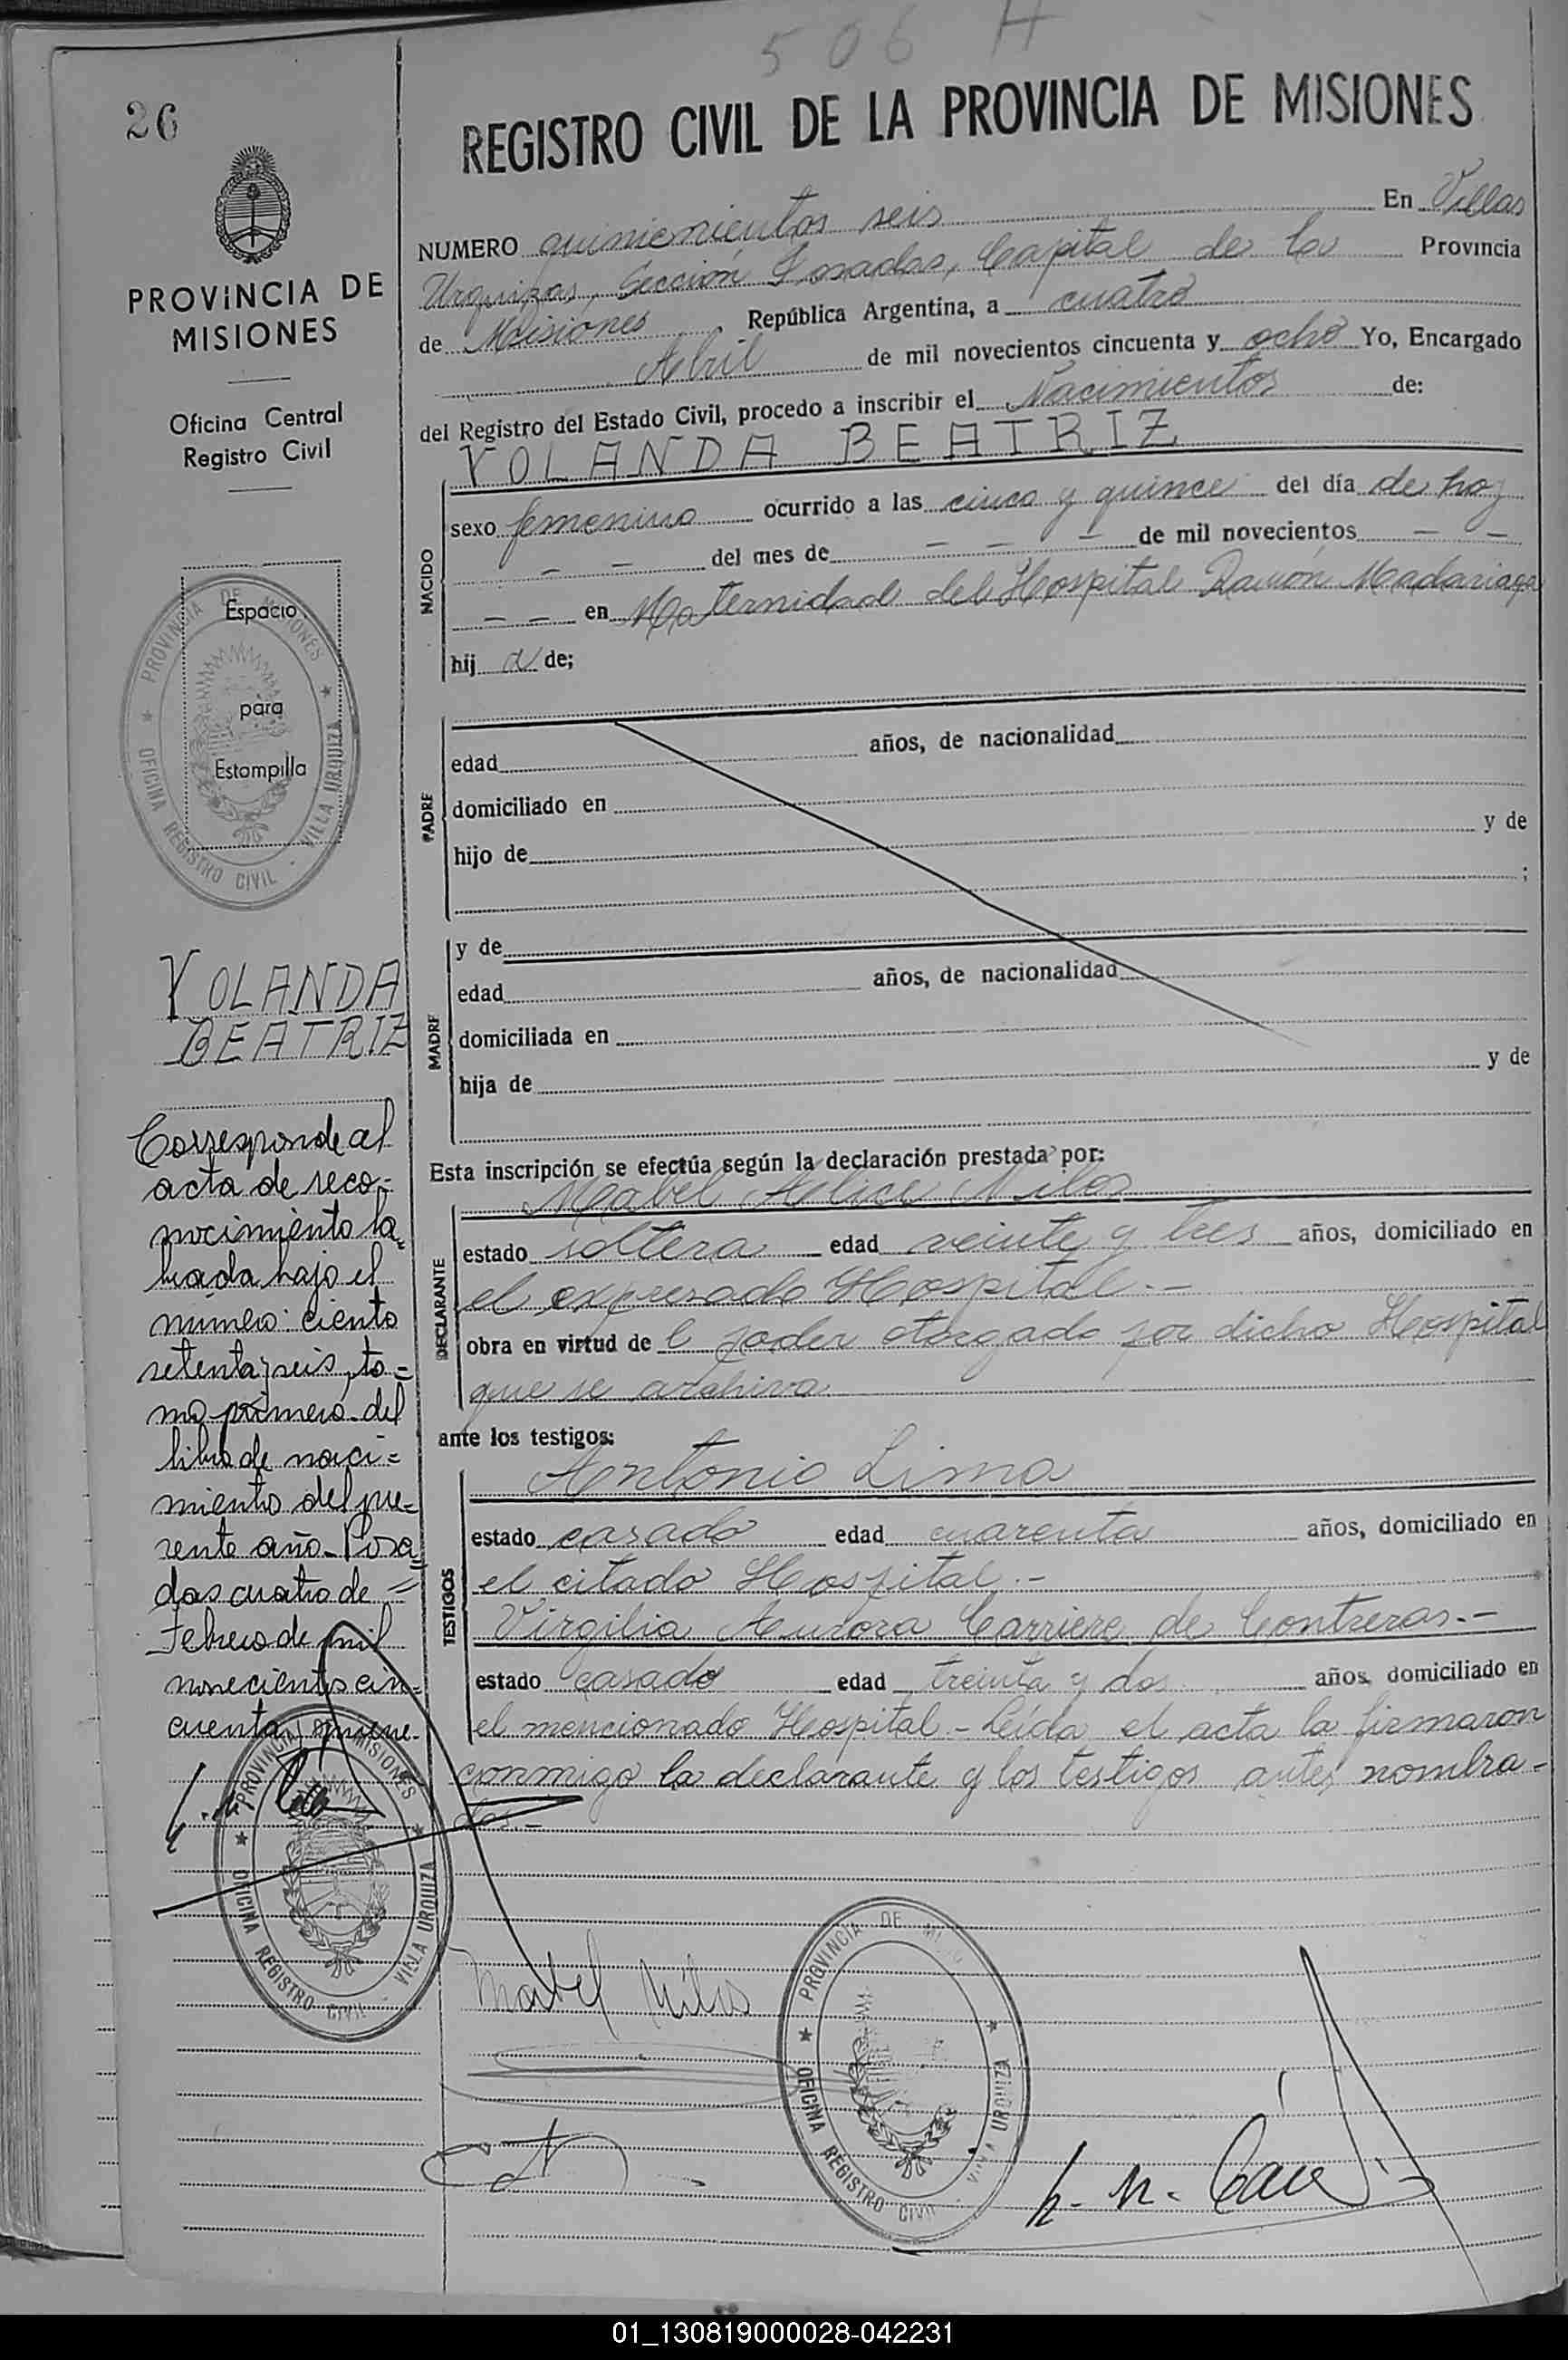 506 H
26
REGISTRO CIVIL DE LA PROVINCIA DE MISIONES
PROVINCIA DE
MISIONES
Oficina Central
Registro Civil
NUMERO quinienientos seis En Villas
Urquizas, Sección Posadas, Capital de la Provincia
de Misiones República Argentina, a cuatro
Abril de mil novecientos cincuenta y ocho Yo, Encargado
del Registro del Estado Civil, procedo a inscribir el Nacimientos de:
YOLANDA BEATRIZ
NACIDO
sexo femenino ocurrido a las cinco y quince del día de hoy
- - del mes de - - - de mil novecientos - -
- - en Maternidad del Hospital Ramón Madariaga
hij a de;
PROVINCIA DE MISIONES
OFICINA REGISTRO CIVIL - VILLA URQUIZA
Espacio
para
Estampilla
PADRE
edad años, de nacionalidad
domiciliado en
hijo de y de
;
MADRE
y de
edad años, de nacionalidad
domiciliada en
hija de y de
YOLANDA
BEATRIZ
Corresponde al
acta de reco-
nocimiento la-
brada bajo el
número: ciento
setenta y seis, to=
mo primero del
libro de naci=
miento del pre-
sente año. Posa=
das cuatro de =
Febrero de mil
novecientos cin-
cuenta y nueve.
PROVINCIA MISIONES
OFICINA REGISTRO CIVIL - VILLA URQUIZA
Esta inscripción se efectúa según la declaración prestada por:
DECLARANTE
Mabel Alice Milos
estado soltera edad veinte y tres años, domiciliado en
el expresado Hospital.-
obra en virtud de l poder otorgado por dicho Hospital
que se archiva
ante los testigos:
TESTIGOS
Antonio Lima
estado casado edad cuarenta años, domiciliado en
el citado Hospital.-
Virgilia Aurora Carriere de Contreras.-
estado casado edad treinta y dos años, domiciliado en
el mencionado Hospital - Leída el acta la firmaron
conmigo la declarante y los testigos antes nombra-
dos.-
Mabel Milos
PROVINCIA DE
OFICINA REGISTRO CIVIL - VILLA URQUIZA
01_130819000028-042231